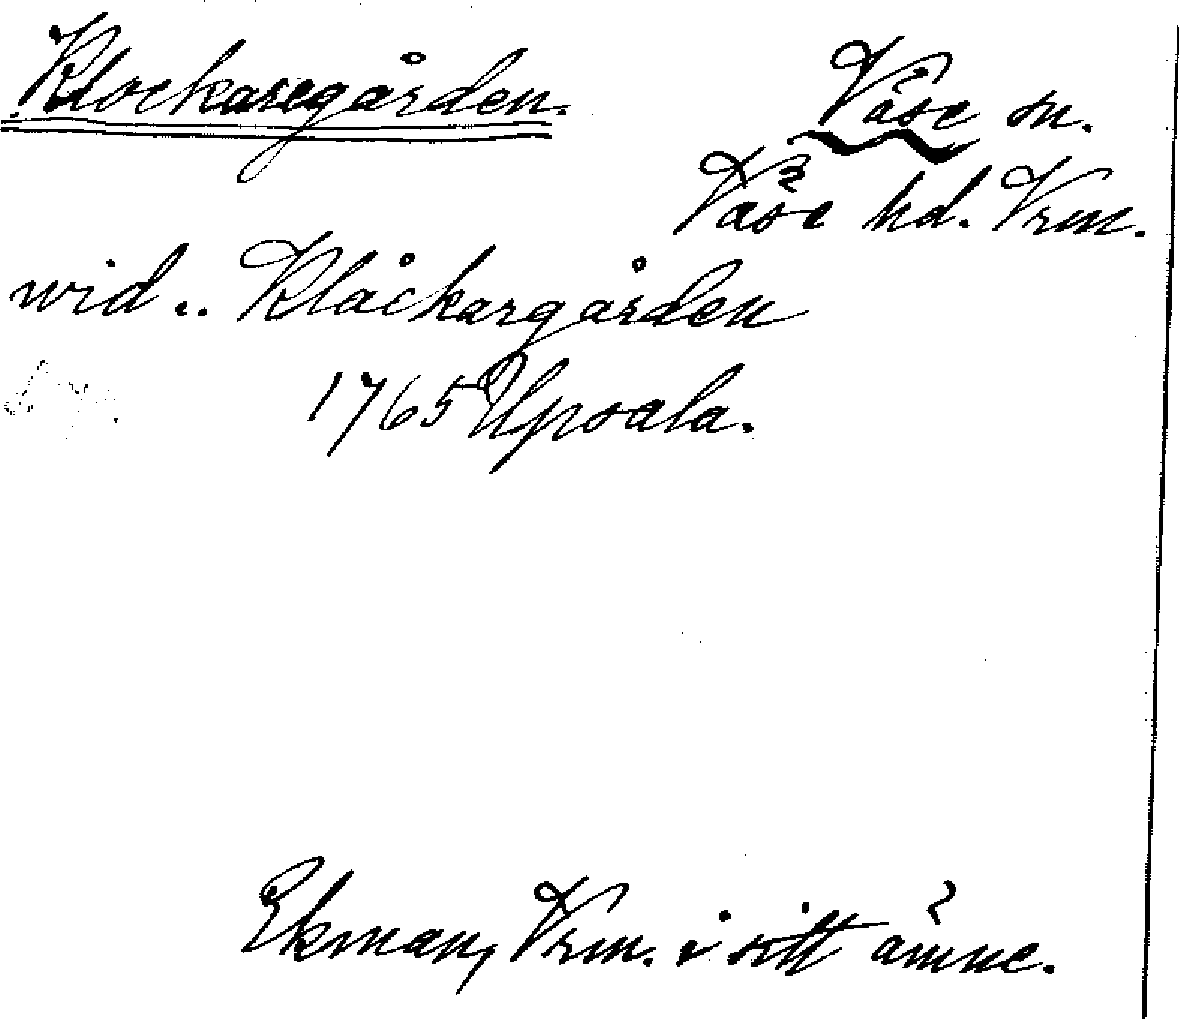 Klockaregården.
Väse sn.
Väse hd. Vrm.
wid .. Klåckargården
1765 Upsala.
Ekman, Vrm. i sitt ämne.